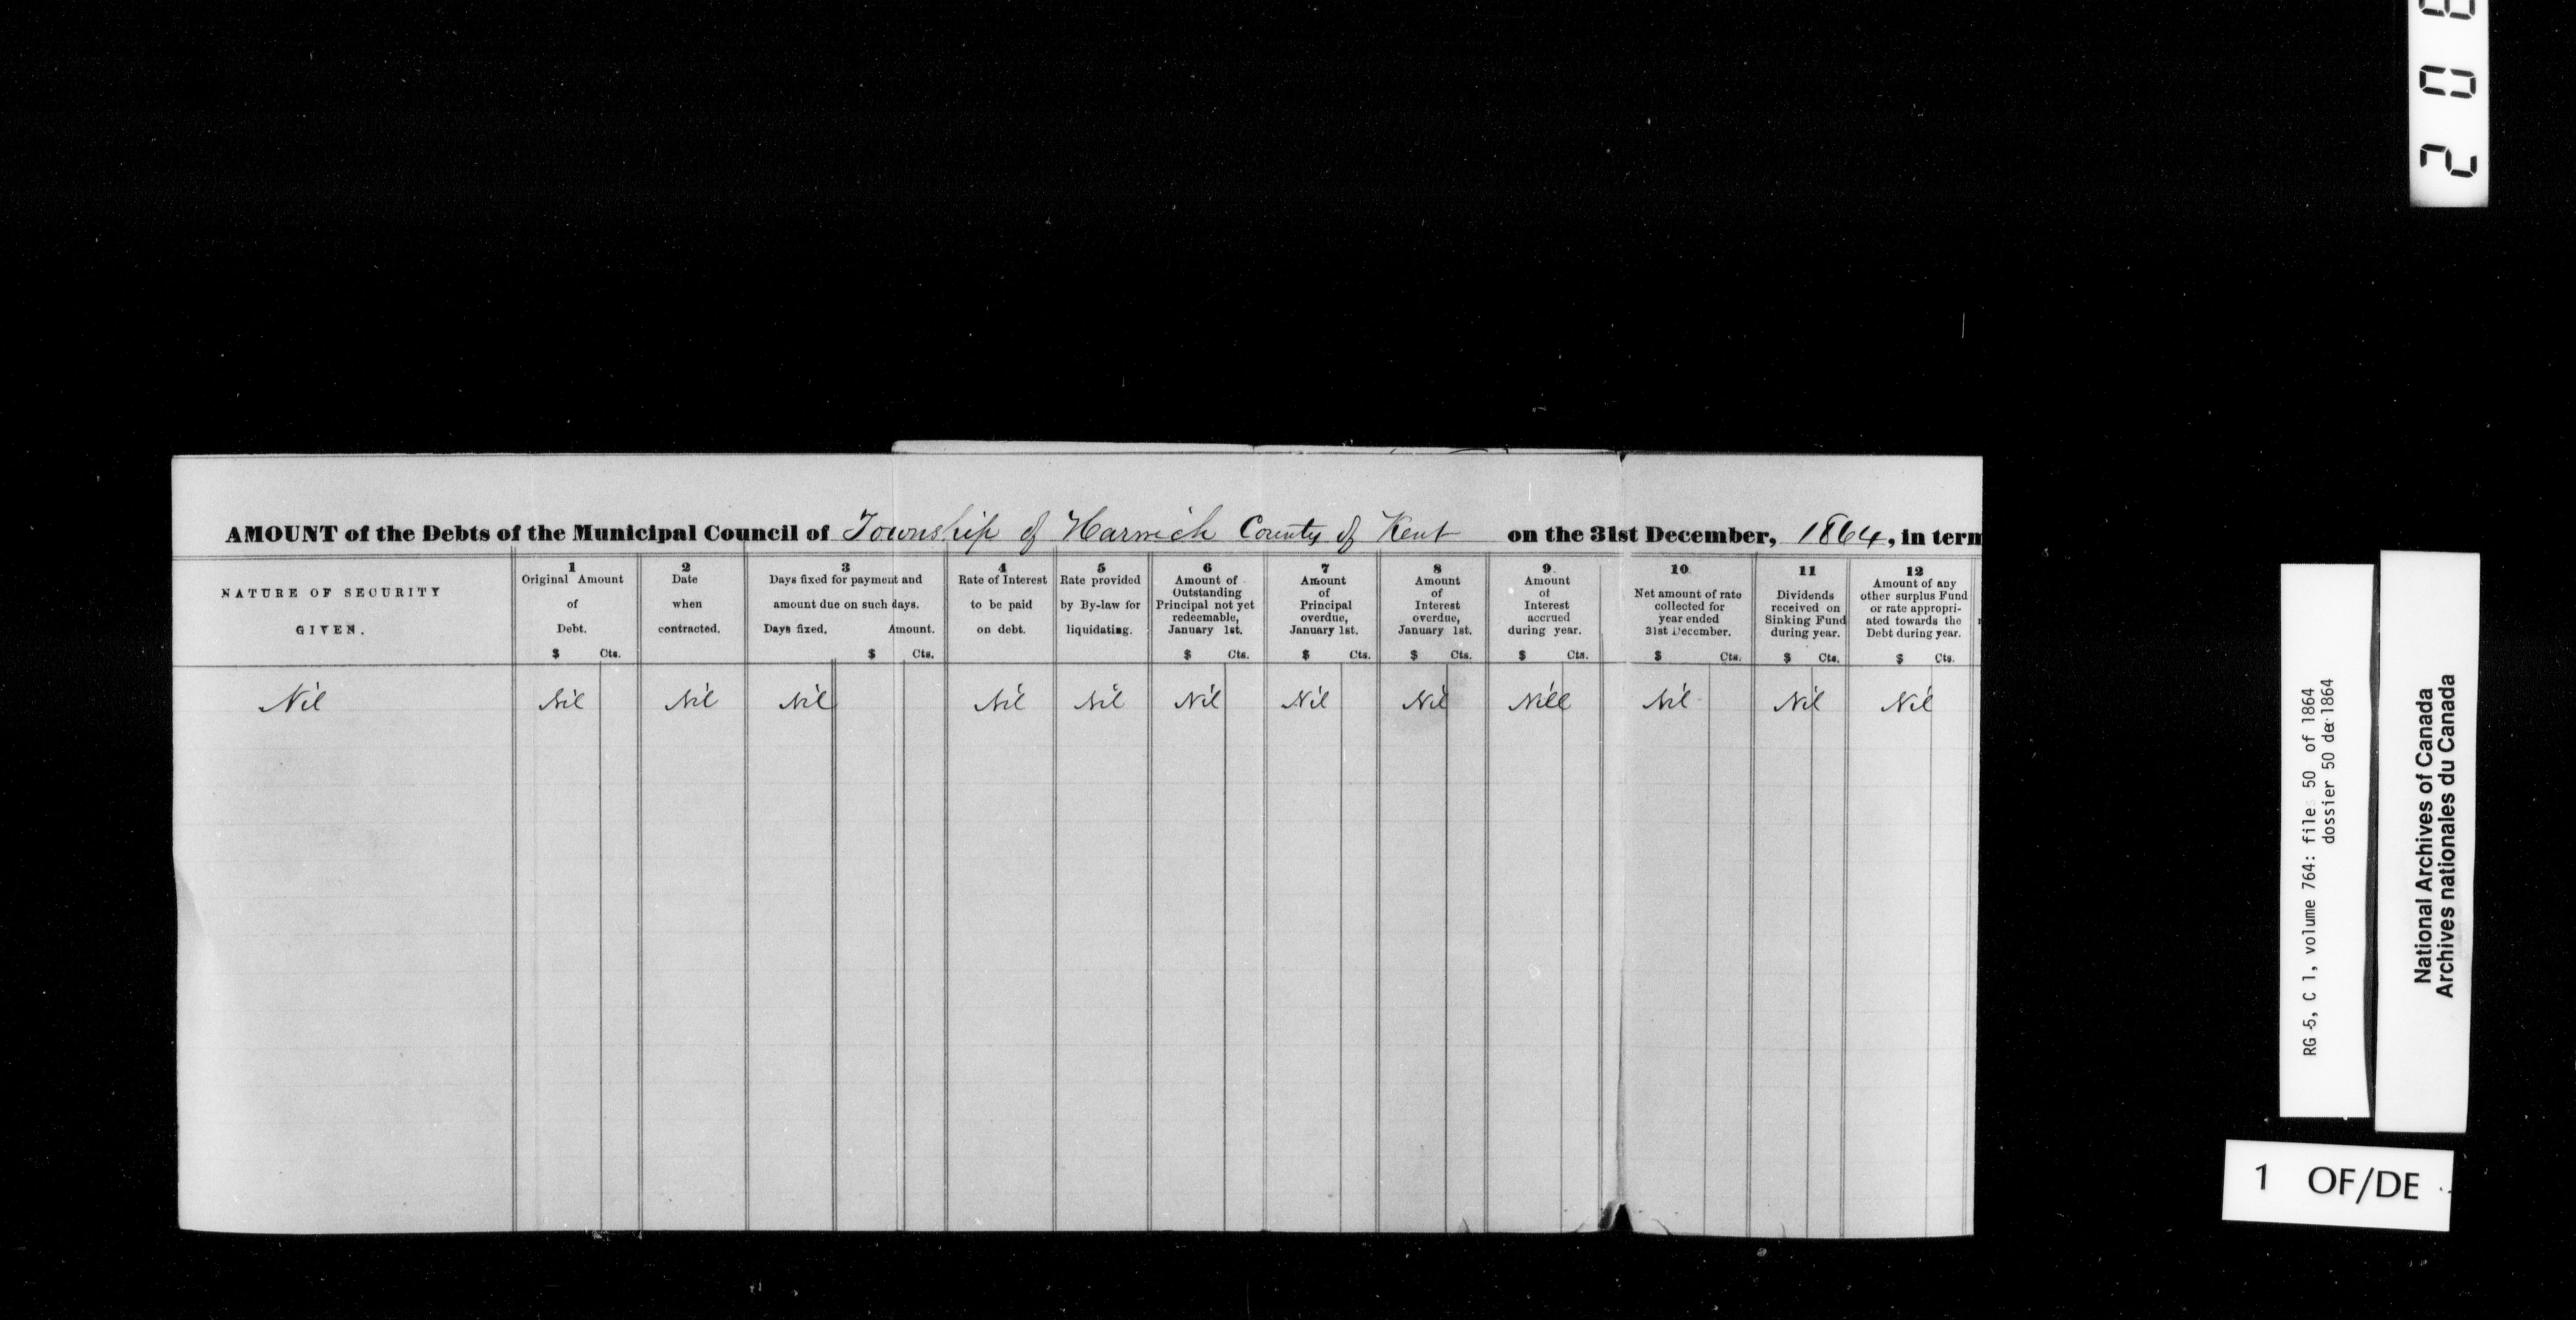 AMOUNT of the Debts of the Municipal Council of Township of Harwich County of Kent on the 31st December, 1864, in term
NATURE OF SECURITY
GIVEN.
1
Original Amount
of
Debt.
$ Cts.
2
Date
when
contracted.
3
Days fixed for payment and
amount due on such days.
Days fixed. Amount.
$ Cts.
4
Rate of Interest
to be paid
on debt.
5
Rate provided
by By-law for
liquidating.
6
Amount of
Outstanding
Principal not yet
redeemable,
January 1st.
$ Cts.
7
Amount
of
Principal
overdue,
January 1st.
$ Cts.
8
Amount
of
Interest
overdue,
January 1st.
$ Cts.
9.
Amount
of
Interest
accrued
during year.
$ Cts.
10
Net amount of rate
collected for
year ended
31st December.
$ Cts.
11
Dividends
received on
Sinking Fund
during year.
$ Cts.
12
Amount of any
other surplus Fund
or rate appropri-
ated towards the
Debt during year.
$ Cts.
Nil Nil Nil Nil Nil Nil Nil Nil Nil Nill Nil Nil Nil
RG 5, C 1, volume 764: file 50 of 1864
dossier 50 de 1864
National Archives of Canada
Archives nationales du Canada
1 OF/DE
2 0